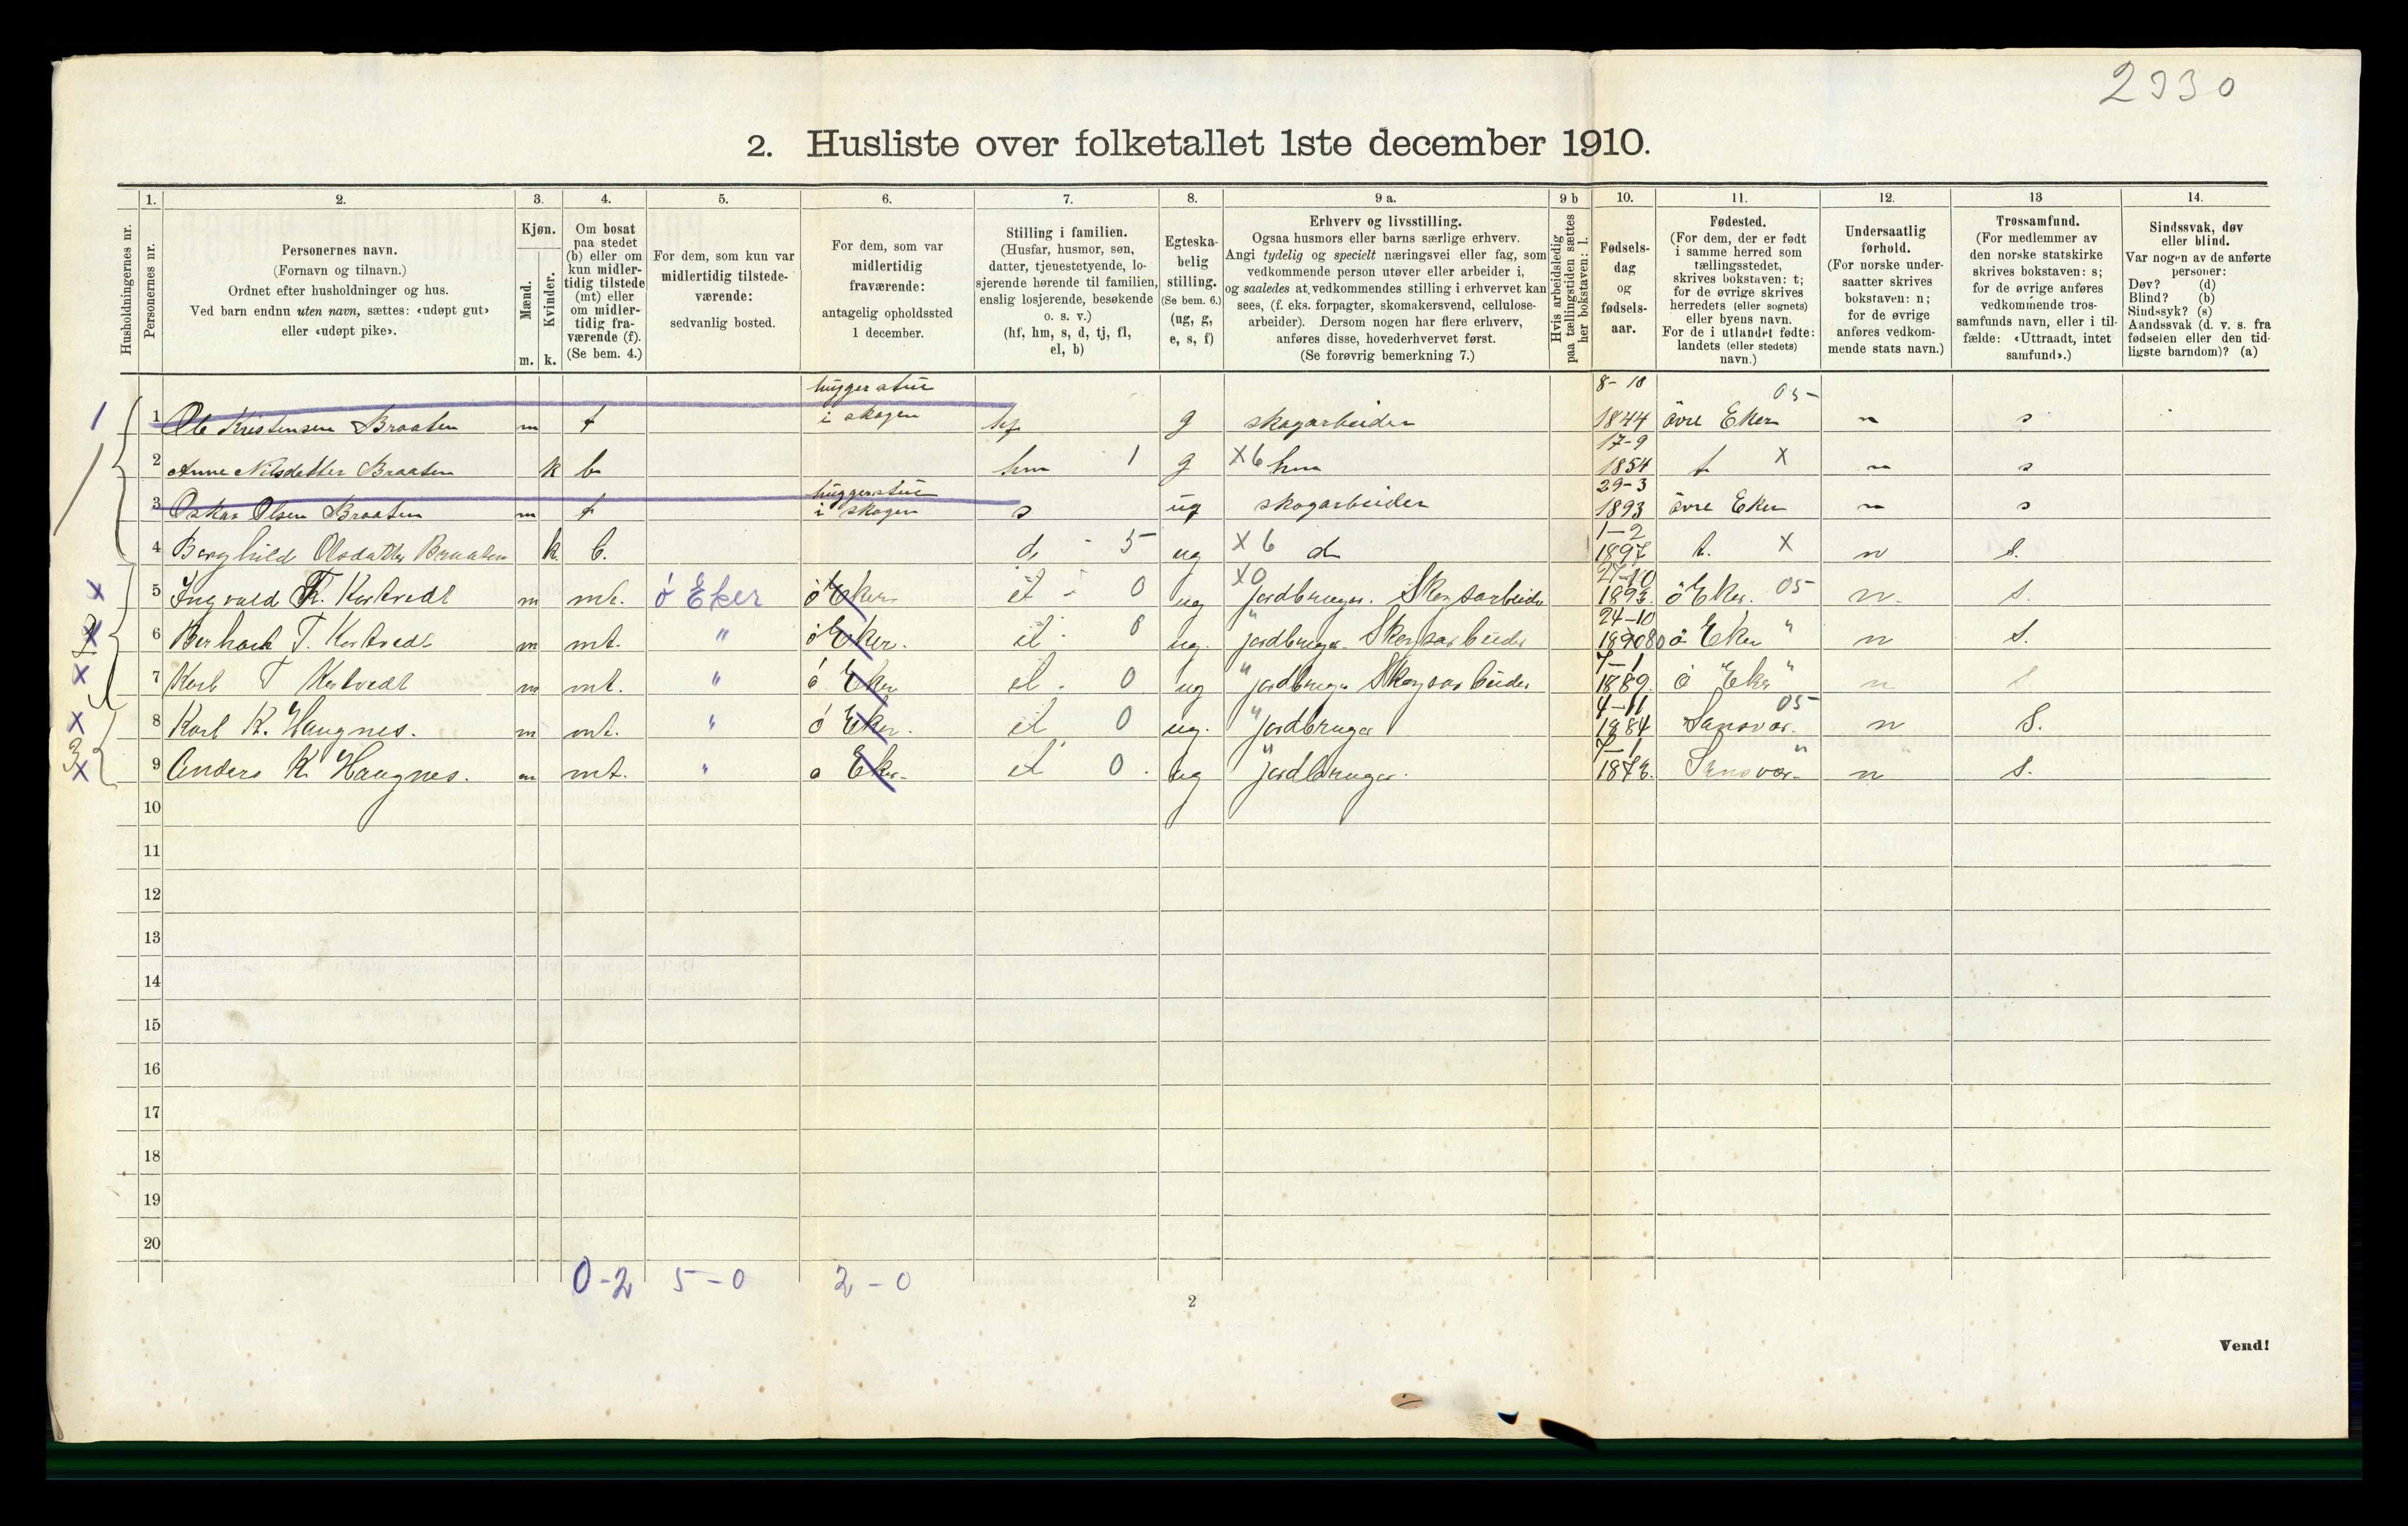 2330
2. Husliste over folketallet 1ste december 1910.
Husholdningernes nr.
1. Personernes nr.
2. Personernes navn.
(Fornavn og tilnavn.)
Ordnet efter husholdninger og hus.
Ved barn endnu uten navn, sættes: «udøpt gut»
eller «udøpt pike».
3. Kjøn.
Mænd. Kvinder.
m. k.
4. Om bosat
paa stedet
(b) eller om
kun midler-
tidig tilstede
(mt) eller
om midler-
tidig fra-
værende (f).
(Se bem. 4.)
5. For dem, som kun var
midlertidig tilstede-
værende:
sedvanlig bosted.
6. For dem, som var
midlertidig
fraværende:
antagelig opholdssted
1 december.
7. Stilling i familien.
(Husfar, husmor, søn,
datter, tjenestetyende, lo-
sjerende hørende til familien,
enslig losjerende, besøkende
o. s. v.)
(hf, hm, s, d, tj, fl,
el, b)
8. Egteska-
belig
stilling.
(Se bem. 6.)
(ug, g,
e, s, f)
9 a. Erhverv og livsstilling.
Ogsaa husmors eller barns særlige erhverv.
Angi tydelig og specielt næringsvei eller fag, som
vedkommende person utøver eller arbeider i,
og saaledes at vedkommendes stilling i erhvervet kan
sees, (f. eks. forpagter, skomakersvend, cellulose-
arbeider). Dersom nogen har flere erhverv,
anføres disse, hovederhvervet først.
(Se forøvrig bemerkning 7.)
9 b Hvis arbeidsledig
paa tællingstiden sættes
her bokstaven: l.
10. Fødsels-
dag
og
fødsels-
aar.
11. Fødested.
(For dem, der er født
i samme herred som
tællingsstedet,
skrives bokstaven: t;
for de øvrige skrives
herredets (eller sognets)
eller byens navn.
For de i utlandet fødte:
landets (eller stedets)
navn.)
12. Undersaatlig
forhold.
(For norske under-
saatter skrives
bokstaven: n;
for de øvrige
anføres vedkom-
mende stats navn.)
13 Trossamfund.
(For medlemmer av
den norske statskirke
skrives bokstaven: s;
for de øvrige anføres
vedkommende tros-
samfunds navn, eller i til-
fælde: «Uttraadt, intet
samfund».)
14. Sindssvak, døv
eller blind.
Var nogen av de anførte
personer:
Døv? (d)
Blind? (b)
Sindssyk? (s)
Aandssvak (d. v. s. fra
fødselen eller den tid-
ligste barndom)? (a)
1 1 Ole Kristensen Braaten m f huggerstue i skogen hf g skogarbeider 8-10 1844 övre Eker 05 n s
2 Anne Nilsdatter Braaten k b hm 1 g X6 hm 17-9 1854 t X n s
3 Oskar Olsen Braaten m f huggerstue i skogen s ug skogarbeider 29-3 1893 övre Eker n s
4 Borghild Olsdatter Braaten k. b. d - 5 ug X 6 d 1-2 1897 t. X n S.
X 5 Ingvald K. Kortvedt m mt. ö Eker ö Eker el - 0 ug X0 Jordbruger. Skogsarbeider 27-10 1893. ö Eker. 05 n. S.
X 6 T. Kortvedt m mt. " ö Eker. el - 0 ug. Jordbruger Skogsarbeider 24-10 80 ö Eker " n S.
X 7 Karl T Kortvedt m mt. " ö Eker el - 0 ug " jordbruger Skogsarbeider 7-1 1889. ö Eker " n S
X 8 Karl K. Haugnes. m mt. " ö Eker. el 0 ug. " jordbruger 4-11 1884 Sansvær. 05 n S.
3 X 9 Anders K. Haugnes. m mt. " ö Eker. el 0. ug " jordbruger. 7-1 Sansvær. " n S.
10
11
12
13
14
15
16
17
18
19
20
0-2 5-0 2-0
2
Vend!